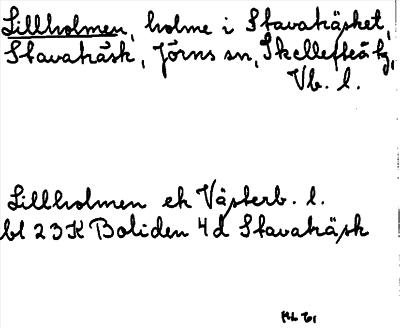 Lillholmen, holme i Stavaträsket,
Stavaträsk, Jörns sn, Skellefteå tg,
Vb. l.
Lillholmen ek Västerb. l.
bl 23K Boliden 4d Stavaträsk